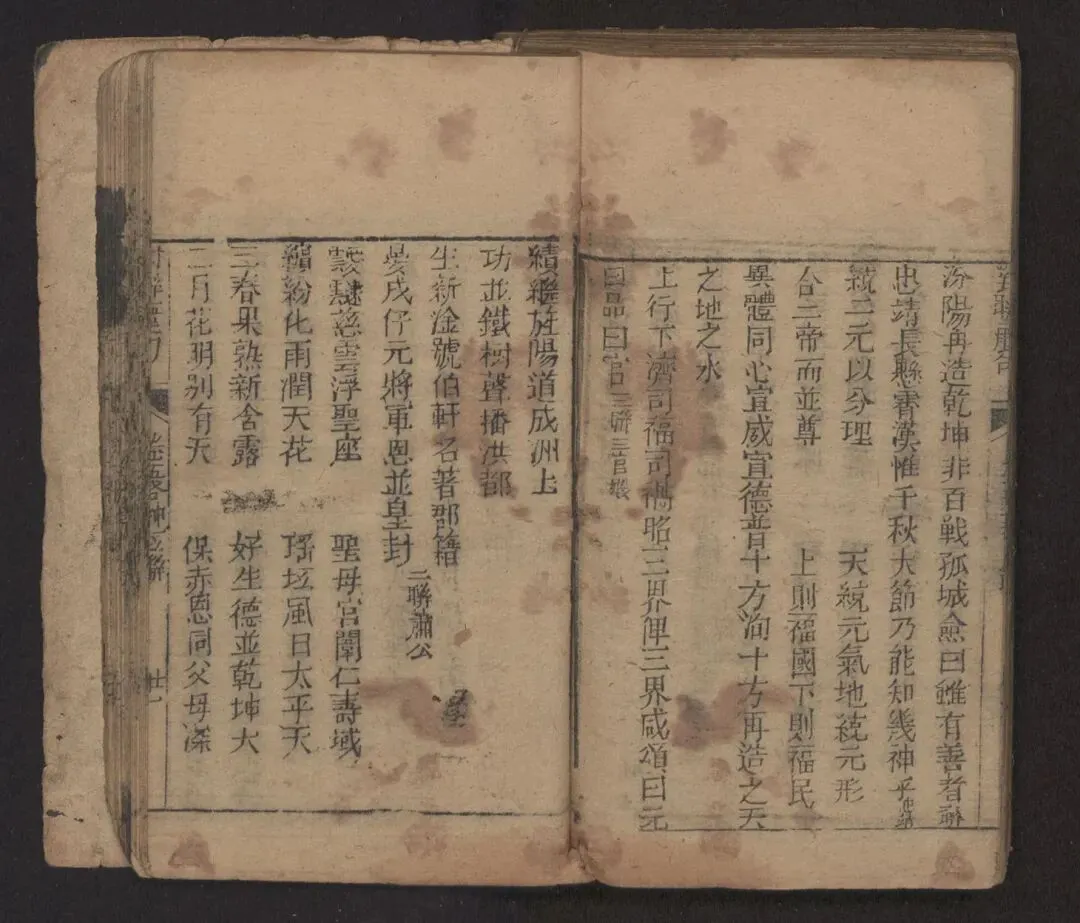 汾陽再造乾坤非百戰孤城僉曰雖有善者聯
忠靖長懸霄漢惟千秋大節乃能知幾神乎
統三元以分理 天統元氣地統元形
合三帝而並尊 上則福國下則福民
異體同心宣威宣德普十方洵十方再造之天
之地之水
上行下濟司福司禍昭三界俾三界咸頌曰元
曰品曰官 三聯三官殿
績繼旌陽道成洲上
功並鐵樹聲播洪都
生新淦號伯軒名著郡籍
晏戌仔元將軍恩並皇封 二聯蕭公
靉靆慈雲浮聖座 聖母宮闈仁壽域
繽紛化雨潤天花 瑤坛風日太平天
三春果熟新含露 好生德並乾坤大
二月花明别有天 保赤恩同父母深
卷五 神 聯 廿一